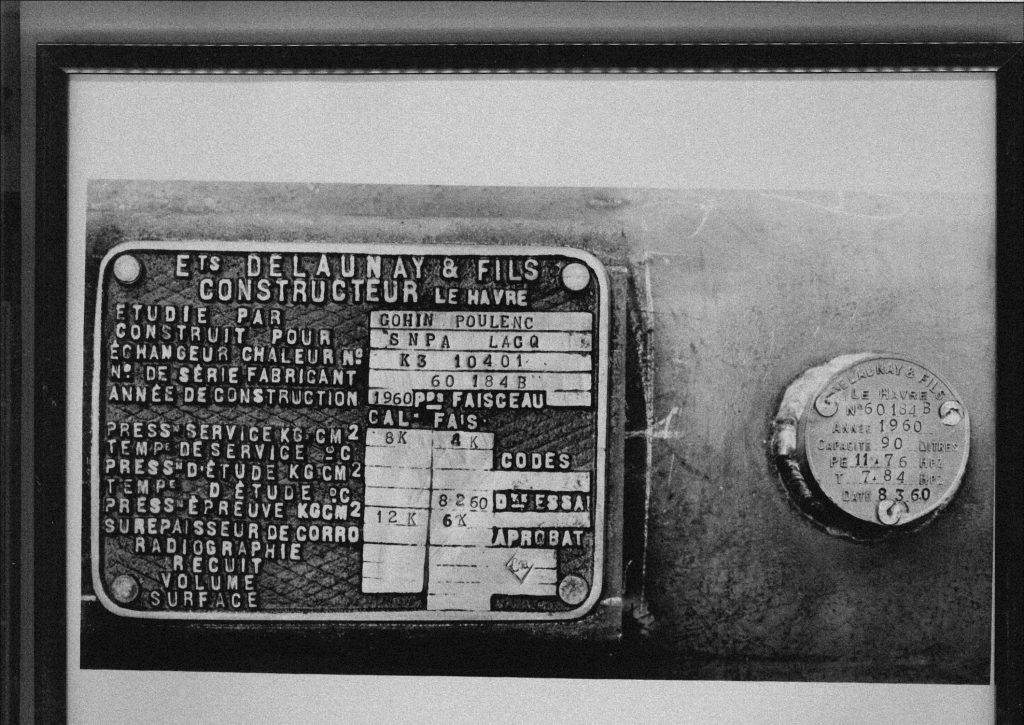 ETS DELAUNAY & FILS
CONSTRUCTEUR LE HAVRE
ETUDIE PAR GOHIN POULENC
CONSTRUIT POUR SNPA LACQ
ÉCHANGEUR CHALEUR Nº K3 10401
Nº DE SÉRIE FABRICANT 60 184 B
ANNÉE DE CONSTRUCTION 1960 PPE FAISCEAU
CAL- FAIS.
PRESSN SERVICE KG.CM2 8K 4K
TEMPE DE SERVICE ºC CODES
PRESSN D'ÉTUDE KGCM2
TEMPE D'ÉTUDE ºC 8 2 60 DTE ESSAI
PRESSN ÉPREUVE KGCM2 12 K 6K
SUREPAISSEUR DE CORRO APROBAT
RADIOGRAPHIE
RECUIT
VOLUME
SURFACE
DELAUNAY & FILS
LE HAVRE
Nº 60 184 B
ANNÉE 1960
CAPACITÉ 90 LITRES
PE 11.76 HPZ
T 7.84 HPZ
DATE 8 3 60